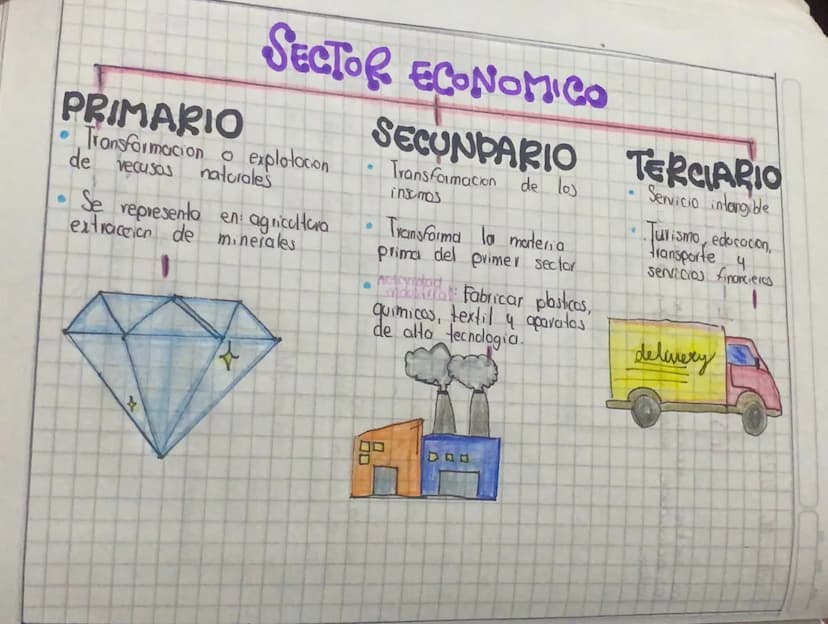 SECTOR ECONOMICO
PRIMARIO
• Transformacion o explotacion
de recusos naturales
• Se representa en: agricultura
extraccion de minerales
SECUNDARIO
• Transformacion de los
insmos
• Transforma la materia
prima del primer sector
• Actividad
industrial: Fabricar plasticos,
quimicos, textil y aparatos
de alta tecnologia.
TERCIARIO
• Servicio intangible
• Turismo, educacon,
transporte y
servicios financieros
delivery